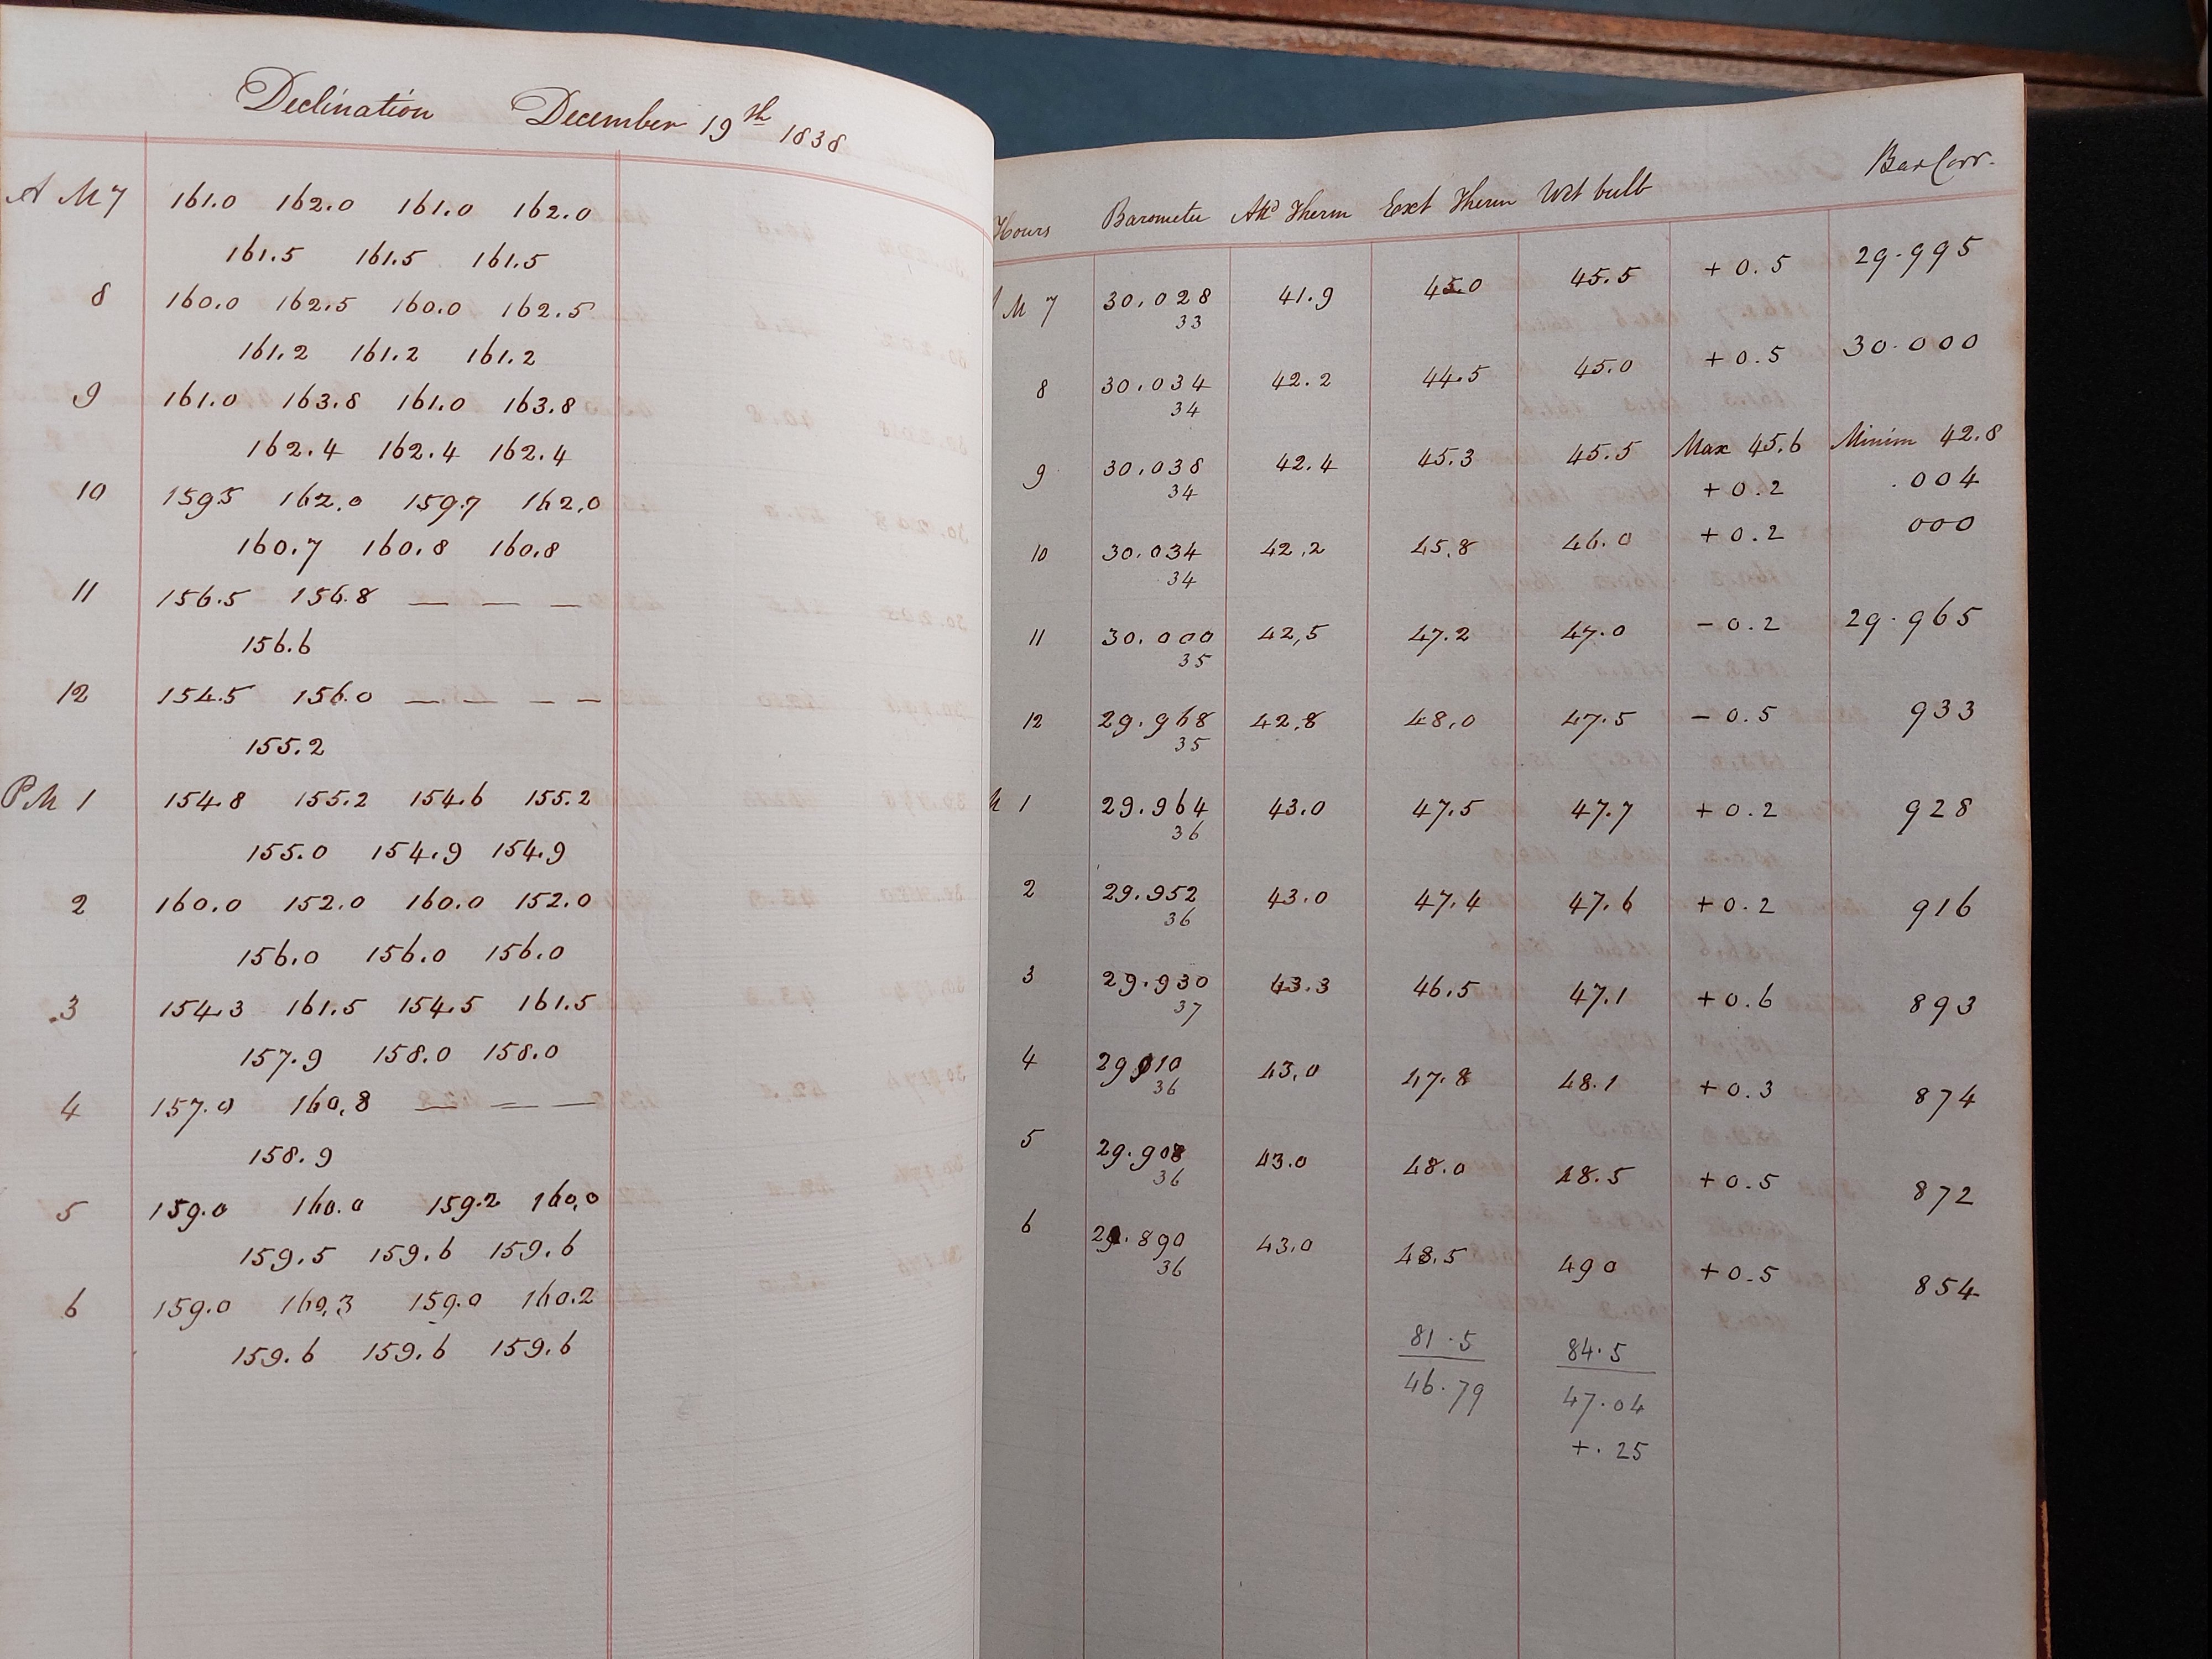 Declination December 19th 1838
A M 7 161.0 162.0 161.0 162.0
161.5 161.5 161.5
8 160.0 162.5 160.0 162.5
161.2 161.2 161.2
9 161.0 163.8 161.0 163.8
162.4 162.4 162.4
10 159.5 162.0 159.7 162.0
160.7 160.8 160.8
11 156.5 156.8 — — —
156.6
12 154.5 156.0 — — — —
155.2
P M 1 154.8 155.2 154.6 155.2
155.0 154.9 154.9
2 160.0 152.0 160.0 152.0
156.0 156.0 156.0
3 154.3 161.5 154.5 161.5
157.9 158.0 158.0
4 157.0 160.8 — — —
158.9
5 159.0 160.0 159.2 160.0
159.5 159.6 159.6
6 159.0 160.3 159.0 160.2
159.6 159.6 159.6
Hours Barometer Attd Therm Ext Therm Wet bulb Bar Corr.
M 7 30.028 41.9 45.0 45.5 + 0.5 29.995
33
8 30.034 42.2 44.5 45.0 + 0.5 30.000
34
9 30.038 42.4 45.3 45.5 Max 45.6 Minim 42.8
34 + 0.2 .004
10 30.034 42.2 45.8 46.0 + 0.2 000
34
11 30.000 42,5 47.2 47.0 - 0.2 29.965
35
12 29.968 42.8 48.0 47.5 - 0.5 933
35
1 29.964 43.0 47.5 47.7 + 0.2 928
36
2 29.952 43.0 47.4 47.6 + 0.2 916
36
3 29.930 43.3 46.5 47.1 + 0.6 893
37
4 29910 43.0 47.8 48.1 + 0.3 874
36
5 29.908 43.0 48.0 48.5 + 0.5 872
36
6 29.890 43.0 48.5 490 + 0.5 854
36
81.5 84.5
46.79 47.04
+.25